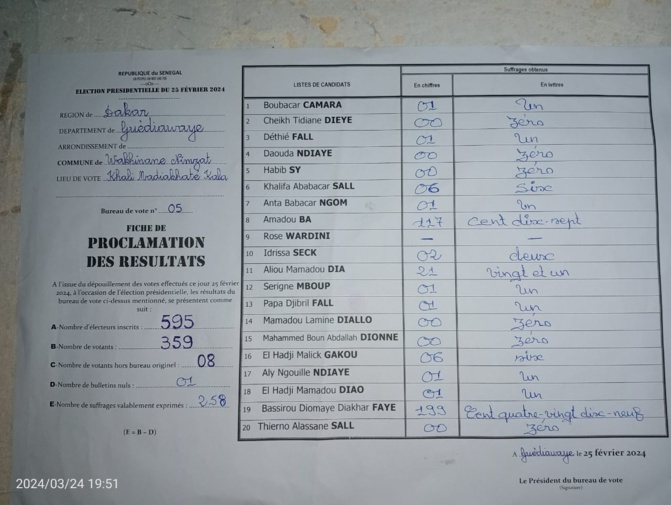 REPUBLIQUE du SENEGAL
ELECTION PRESIDENTIELLE DU 25 FÉVRIER 2024
REGION de Dakar
DEPARTEMENT de Guédiawaye
ARRONDISSEMENT de
COMMUNE de Wakhinane Nimzat
LIEU DE VOTE Khali Madiakhaté Kala
Bureau de vote n° 05
FICHE DE
PROCLAMATION
DES RESULTATS
A l'issue du dépouillement des votes effectués ce jour 25 février
2024, à l'occasion de l'élection présidentielle, les résultats du
bureau de vote ci-dessus mentionné, se présentent comme
suit :
A-Nombre d'électeurs inscrits : 595
B-Nombre de votants : 359
C-Nombre de votants hors bureau originel : 08
D-Nombre de bulletins nuls : 01
E-Nombre de suffrages valablement exprimés : 258
(E = B – D)
Suffrages obtenus
LISTES DE CANDIDATS En chiffres En lettres
1 Boubacar CAMARA 01 Un
2 Cheikh Tidiane DIEYE 00 Zéro
3 Déthié FALL 01 Un
4 Daouda NDIAYE 00 Zéro
5 Habib SY 00 Zéro
6 Khalifa Ababacar SALL 06 Six
7 Anta Babacar NGOM 01 Un
8 Amadou BA 117 Cent dix-sept
9 Rose WARDINI — —
10 Idrissa SECK 02 deux
11 Aliou Mamadou DIA 21 vingt et un
12 Serigne MBOUP 01 Un
13 Papa Djibril FALL 01 Un
14 Mamadou Lamine DIALLO 00 Zéro
15 Mahammed Boun Abdallah DIONNE 00 Zéro
16 El Hadji Malick GAKOU 06 six
17 Aly Ngouille NDIAYE 01 Un
18 El Hadji Mamadou DIAO 01 Un
19 Bassirou Diomaye Diakhar FAYE 199 Cent quatre-vingt dix-neuf
20 Thierno Alassane SALL 00 Zéro
A Guédiawaye le 25 février 2024
Le Président du bureau de vote
(Signature)
2024/03/24 19:51